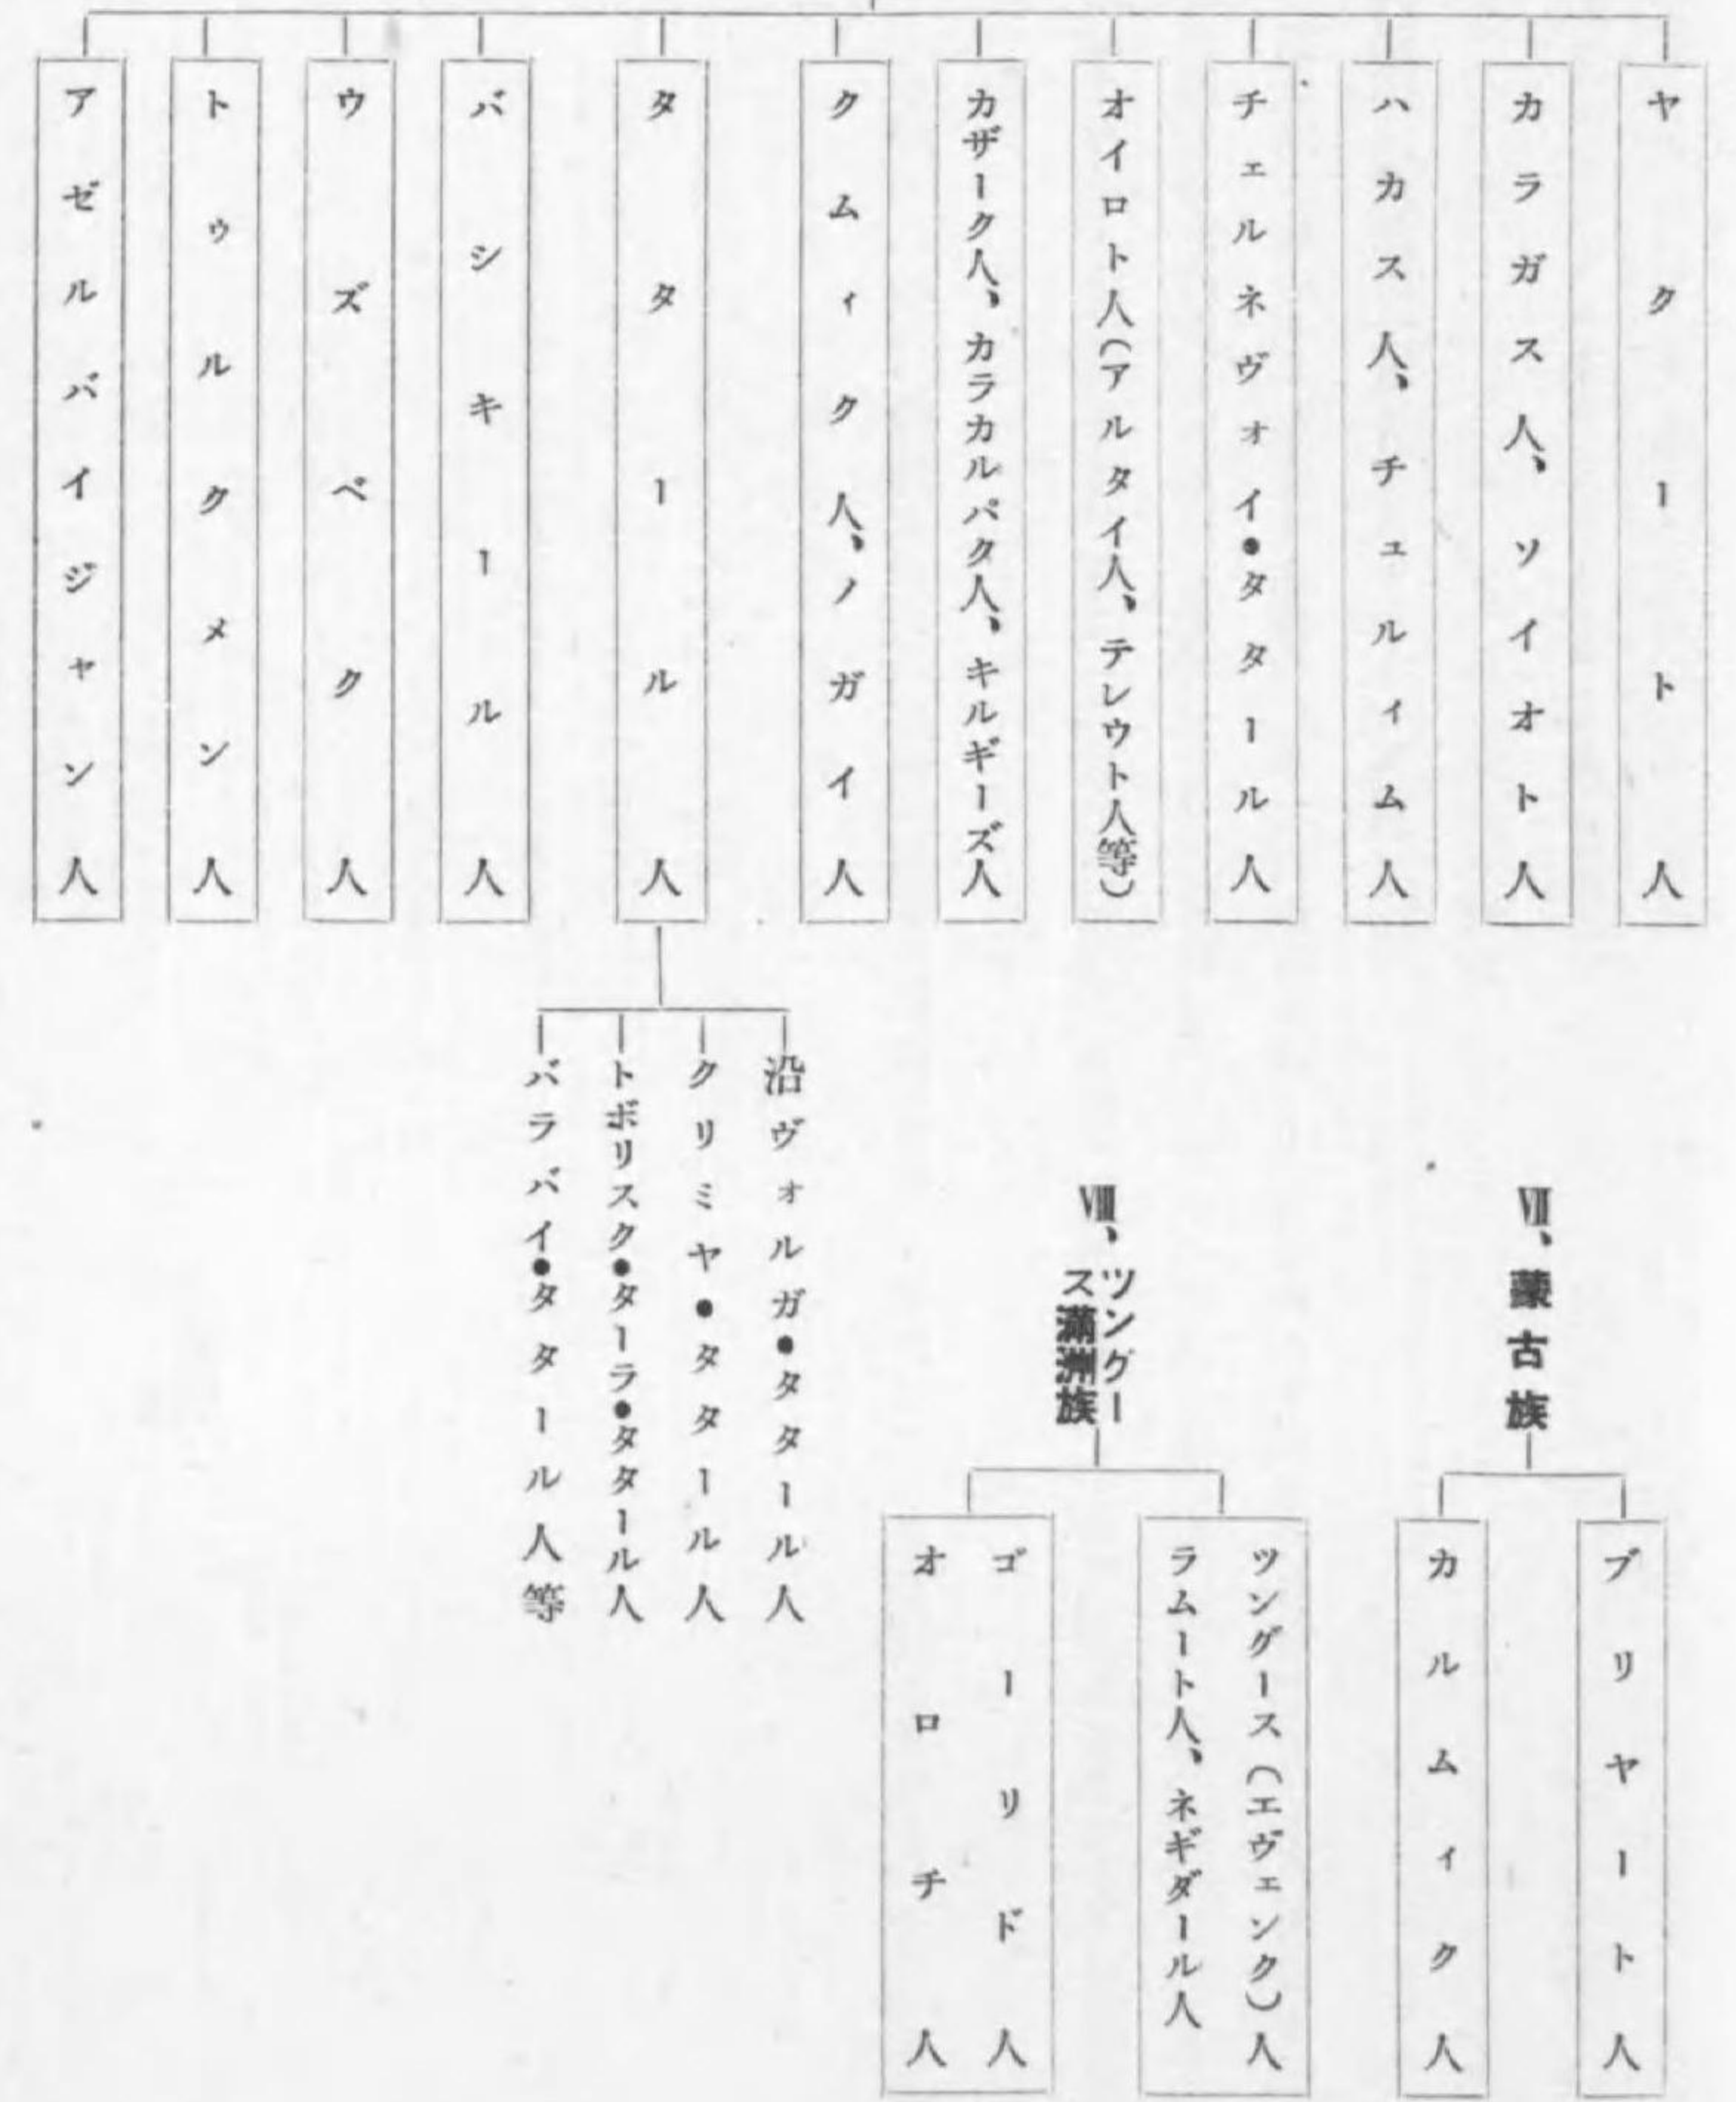 ヤクート人
カラガス人、ソイオト人
ハカス人、チェルィム人
チェルネヴォイ●タタール人
オイロト人(アルタイ人、テレウト人等)
カザーク人、カラカルパク人、キルギーズ人
クムィク人、ノガイ人
タタール人
バシキール人
ウズベク人
トゥルクメン人
アゼルバイジャン人
沿ヴォルガ●タタール人
クリミヤ●タタール人
トボリスク●ターラ●タタール人
バラバイ●タタール人等
Ⅶ、蒙古族
ブリヤート人
カルムィク人
Ⅷ、ツングー
ス満洲族
ツングース(エヴェンク)人
ラムート人、ネギダール人
ゴーリド人
オロチ人